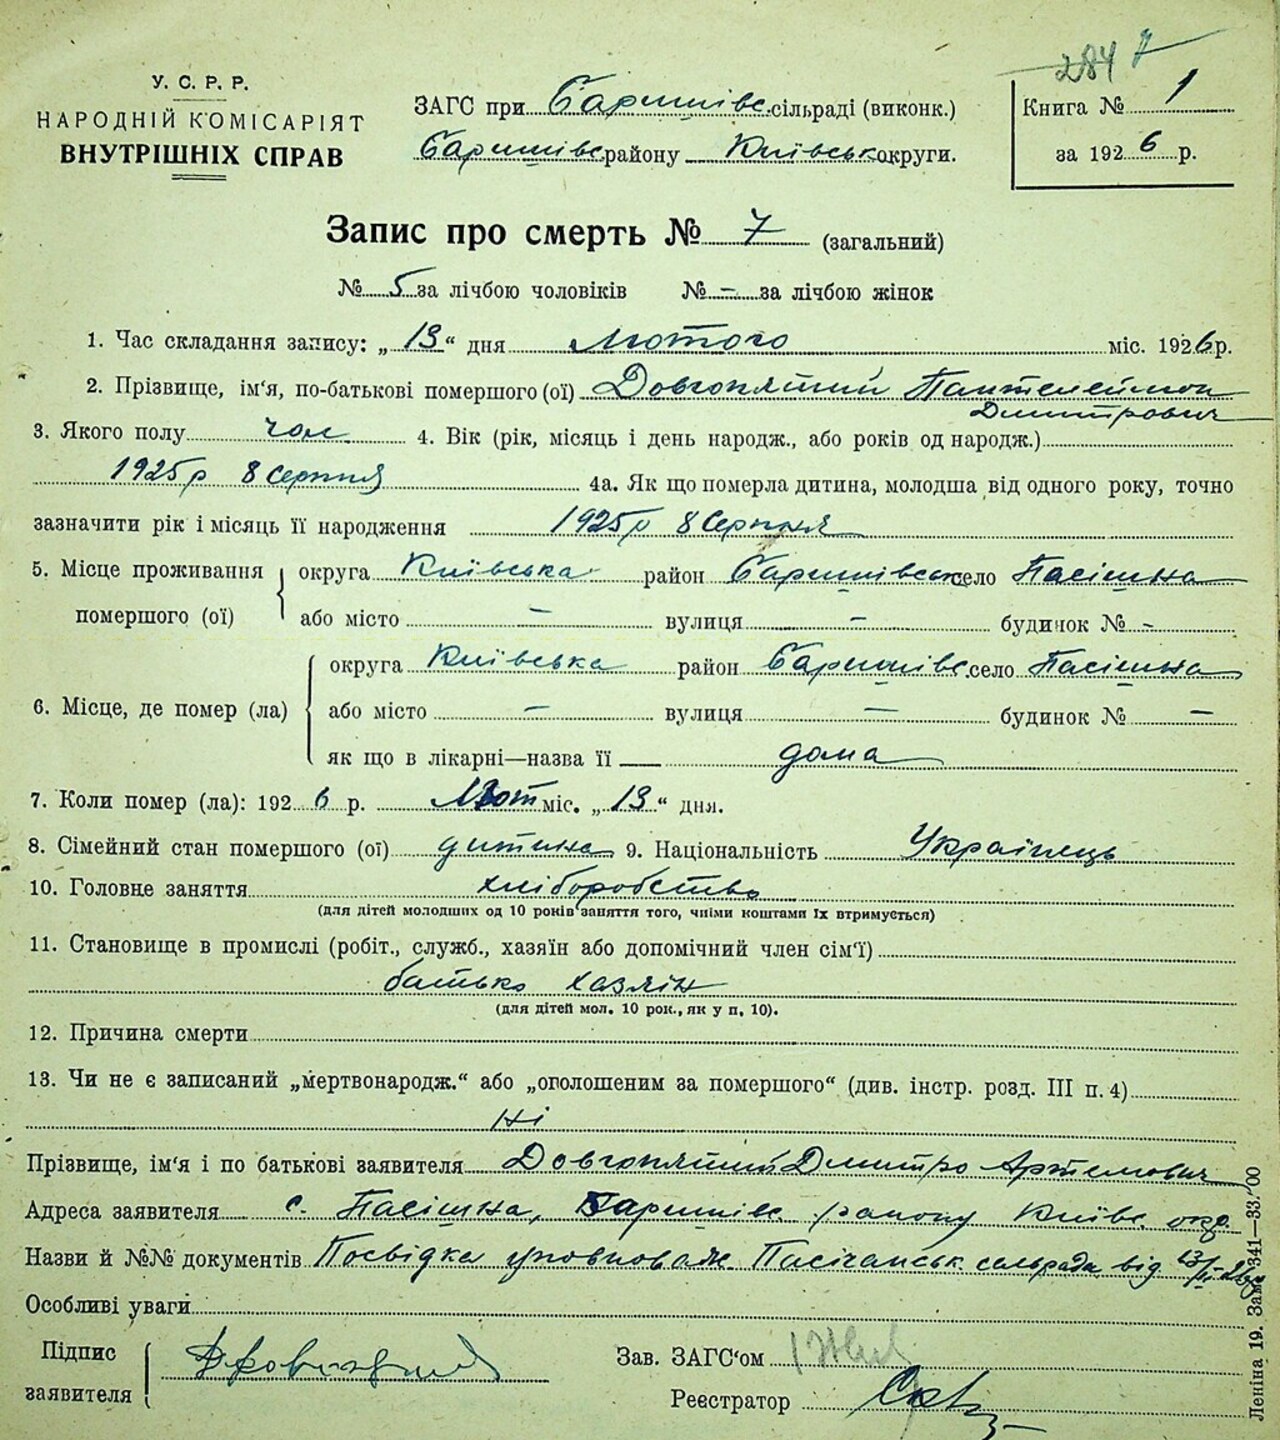 284 7
У. С. Р. Р.
НАРОДНІЙ КОМІСАРІЯТ
ВНУТРІШНІХ СПРАВ
ЗАГС при Баришівс. сільраді (виконк.)
Баришівс району Київськ округи.
Книга № 1
за 1926 р.
Запис про смерть № 7 (загальний)
№ 5 за лічбою чоловіків № - за лічбою жінок
1. Час складання запису: „ 13 “ дня Лютого міс. 1926 р.
2. Прізвище, ім‘я, по-батькові помершого (ої) Довгопятий Пантелеймон
Дмитрович
3. Якого полу чол. 4. Вік (рік, місяць і день народж., або років од народж.)
1925 р 8 Серпня 4а. Як що померла дитина, молодша від одного року, точно
зазначити рік і місяць її народження 1925 р 8 Серпня
5. Місце проживання помершого (ої) округа Київська район Баришівськ село Пасішна
або місто — вулиця — будинок № -
6. Місце, де помер (ла) округа Київська район Баришівс. село Пасішна
або місто — вулиця — будинок № —
як що в лікарні—назва її — дома
7. Коли помер (ла): 1926 р. Лют міс. „ 13 “ дня.
8. Сімейний стан помершого (ої) дитина 9. Національність Українець
10. Головне заняття хліборобство
(для дітей молодших од 10 років заняття того, чиїми коштами їх втримується)
11. Становище в промислі (робіт., служб., хазяїн або допомічний член сім‘ї)
батько хазяїн
(для дітей мол. 10 рок., як у п, 10).
12. Причина смерти
13. Чи не є записаний „мертвонародж.“ або „оголошеним за помершого“ (див. інстр. розд. III п. 4)
Ні
Прізвище, ім‘я і по батькові заявителя Довгопятий Дмитро Артемович
Адреса заявителя с. Пасішна, Баришівс. району Київс. окр.
Назви й №№ документів Посвідка уповноваж. Пасічанськ. сельрада від 13/II-26р
Особліві уваги
Підпис заявителя
Зав. ЗАГС‘ом
Реєстратор
Леніна 19. Зам. 341—83.